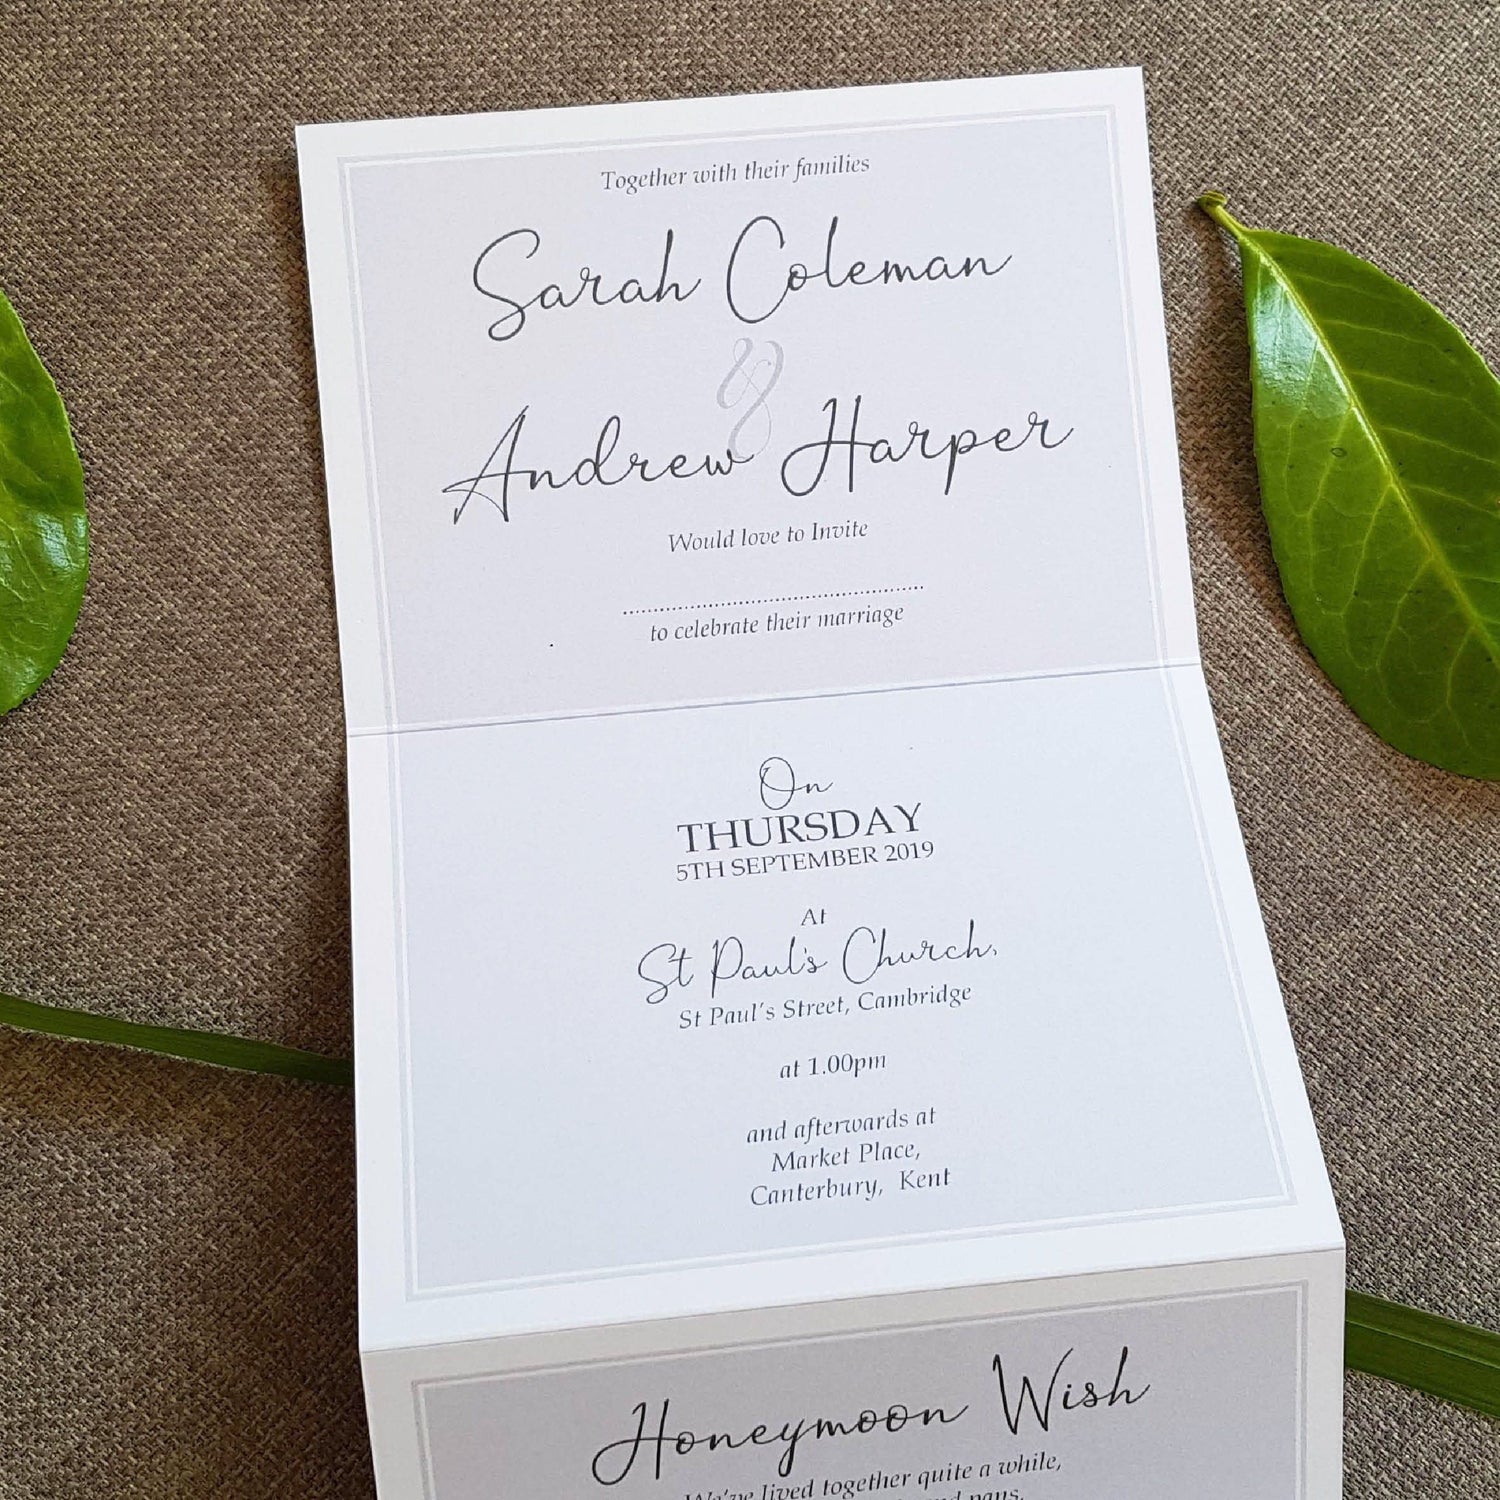 Together with their families
Sarah Coleman
&
Andrew Harper
Would love to Invite
..................................................
to celebrate their marriage
On
THURSDAY
5TH SEPTEMBER 2019
At
St Paul's Church,
St Paul's Street, Cambridge
at 1.00pm
and afterwards at
Market Place,
Canterbury, Kent
Honeymoon Wish
We've lived together quite a while,
pans,